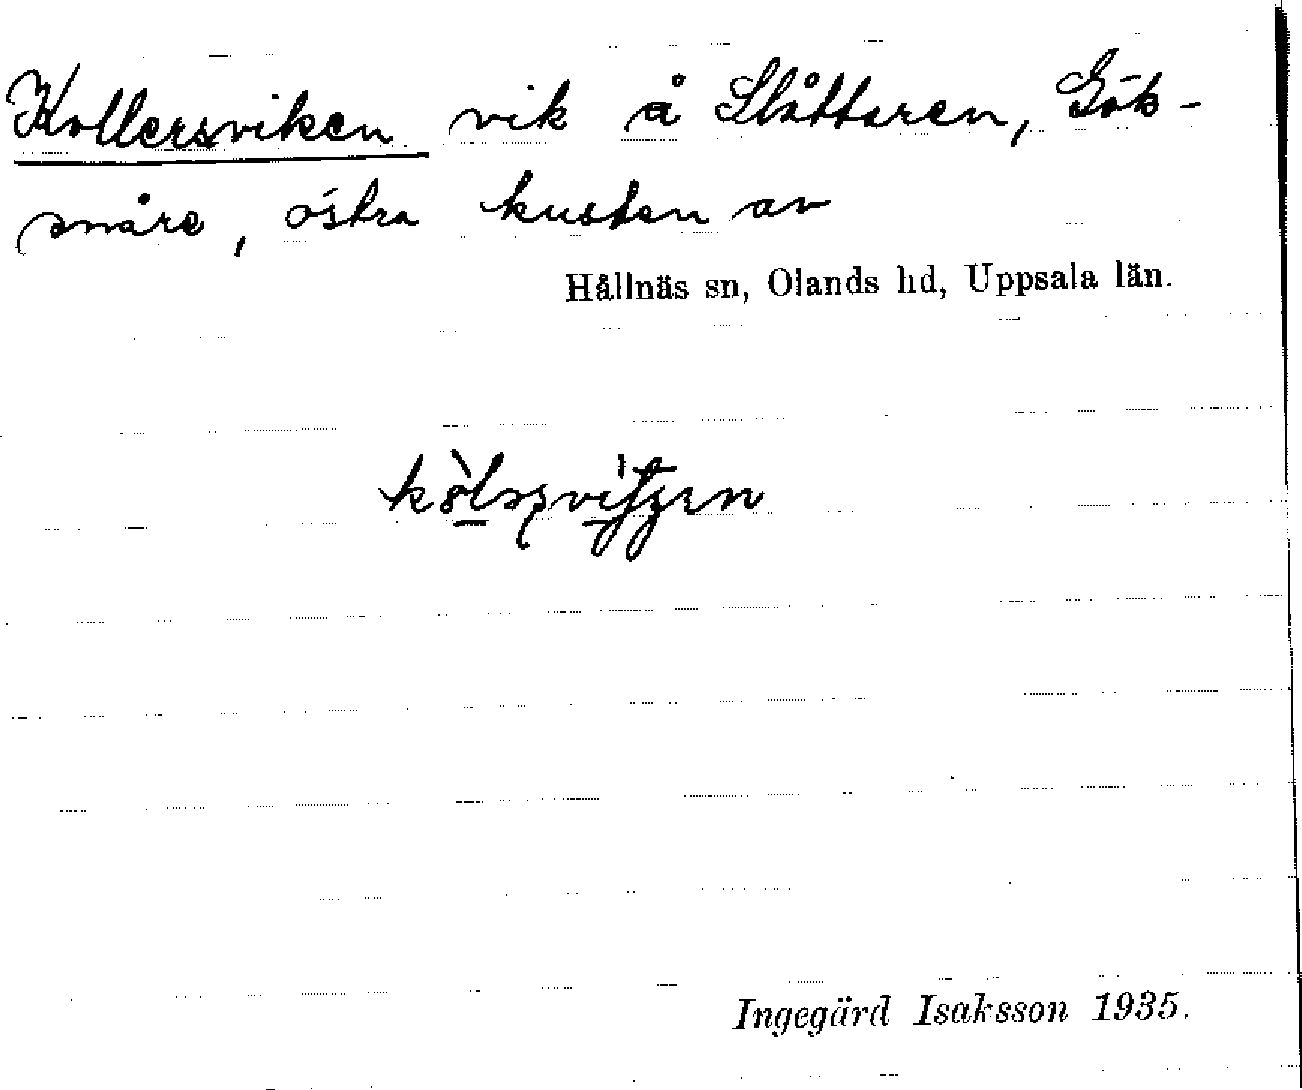 Kollersviken vik å Slåttaren, Gök-
snåre, östra kusten av
Hållnäs sn, Olands hd, Uppsala län.
Ingegärd Isaksson 1935.